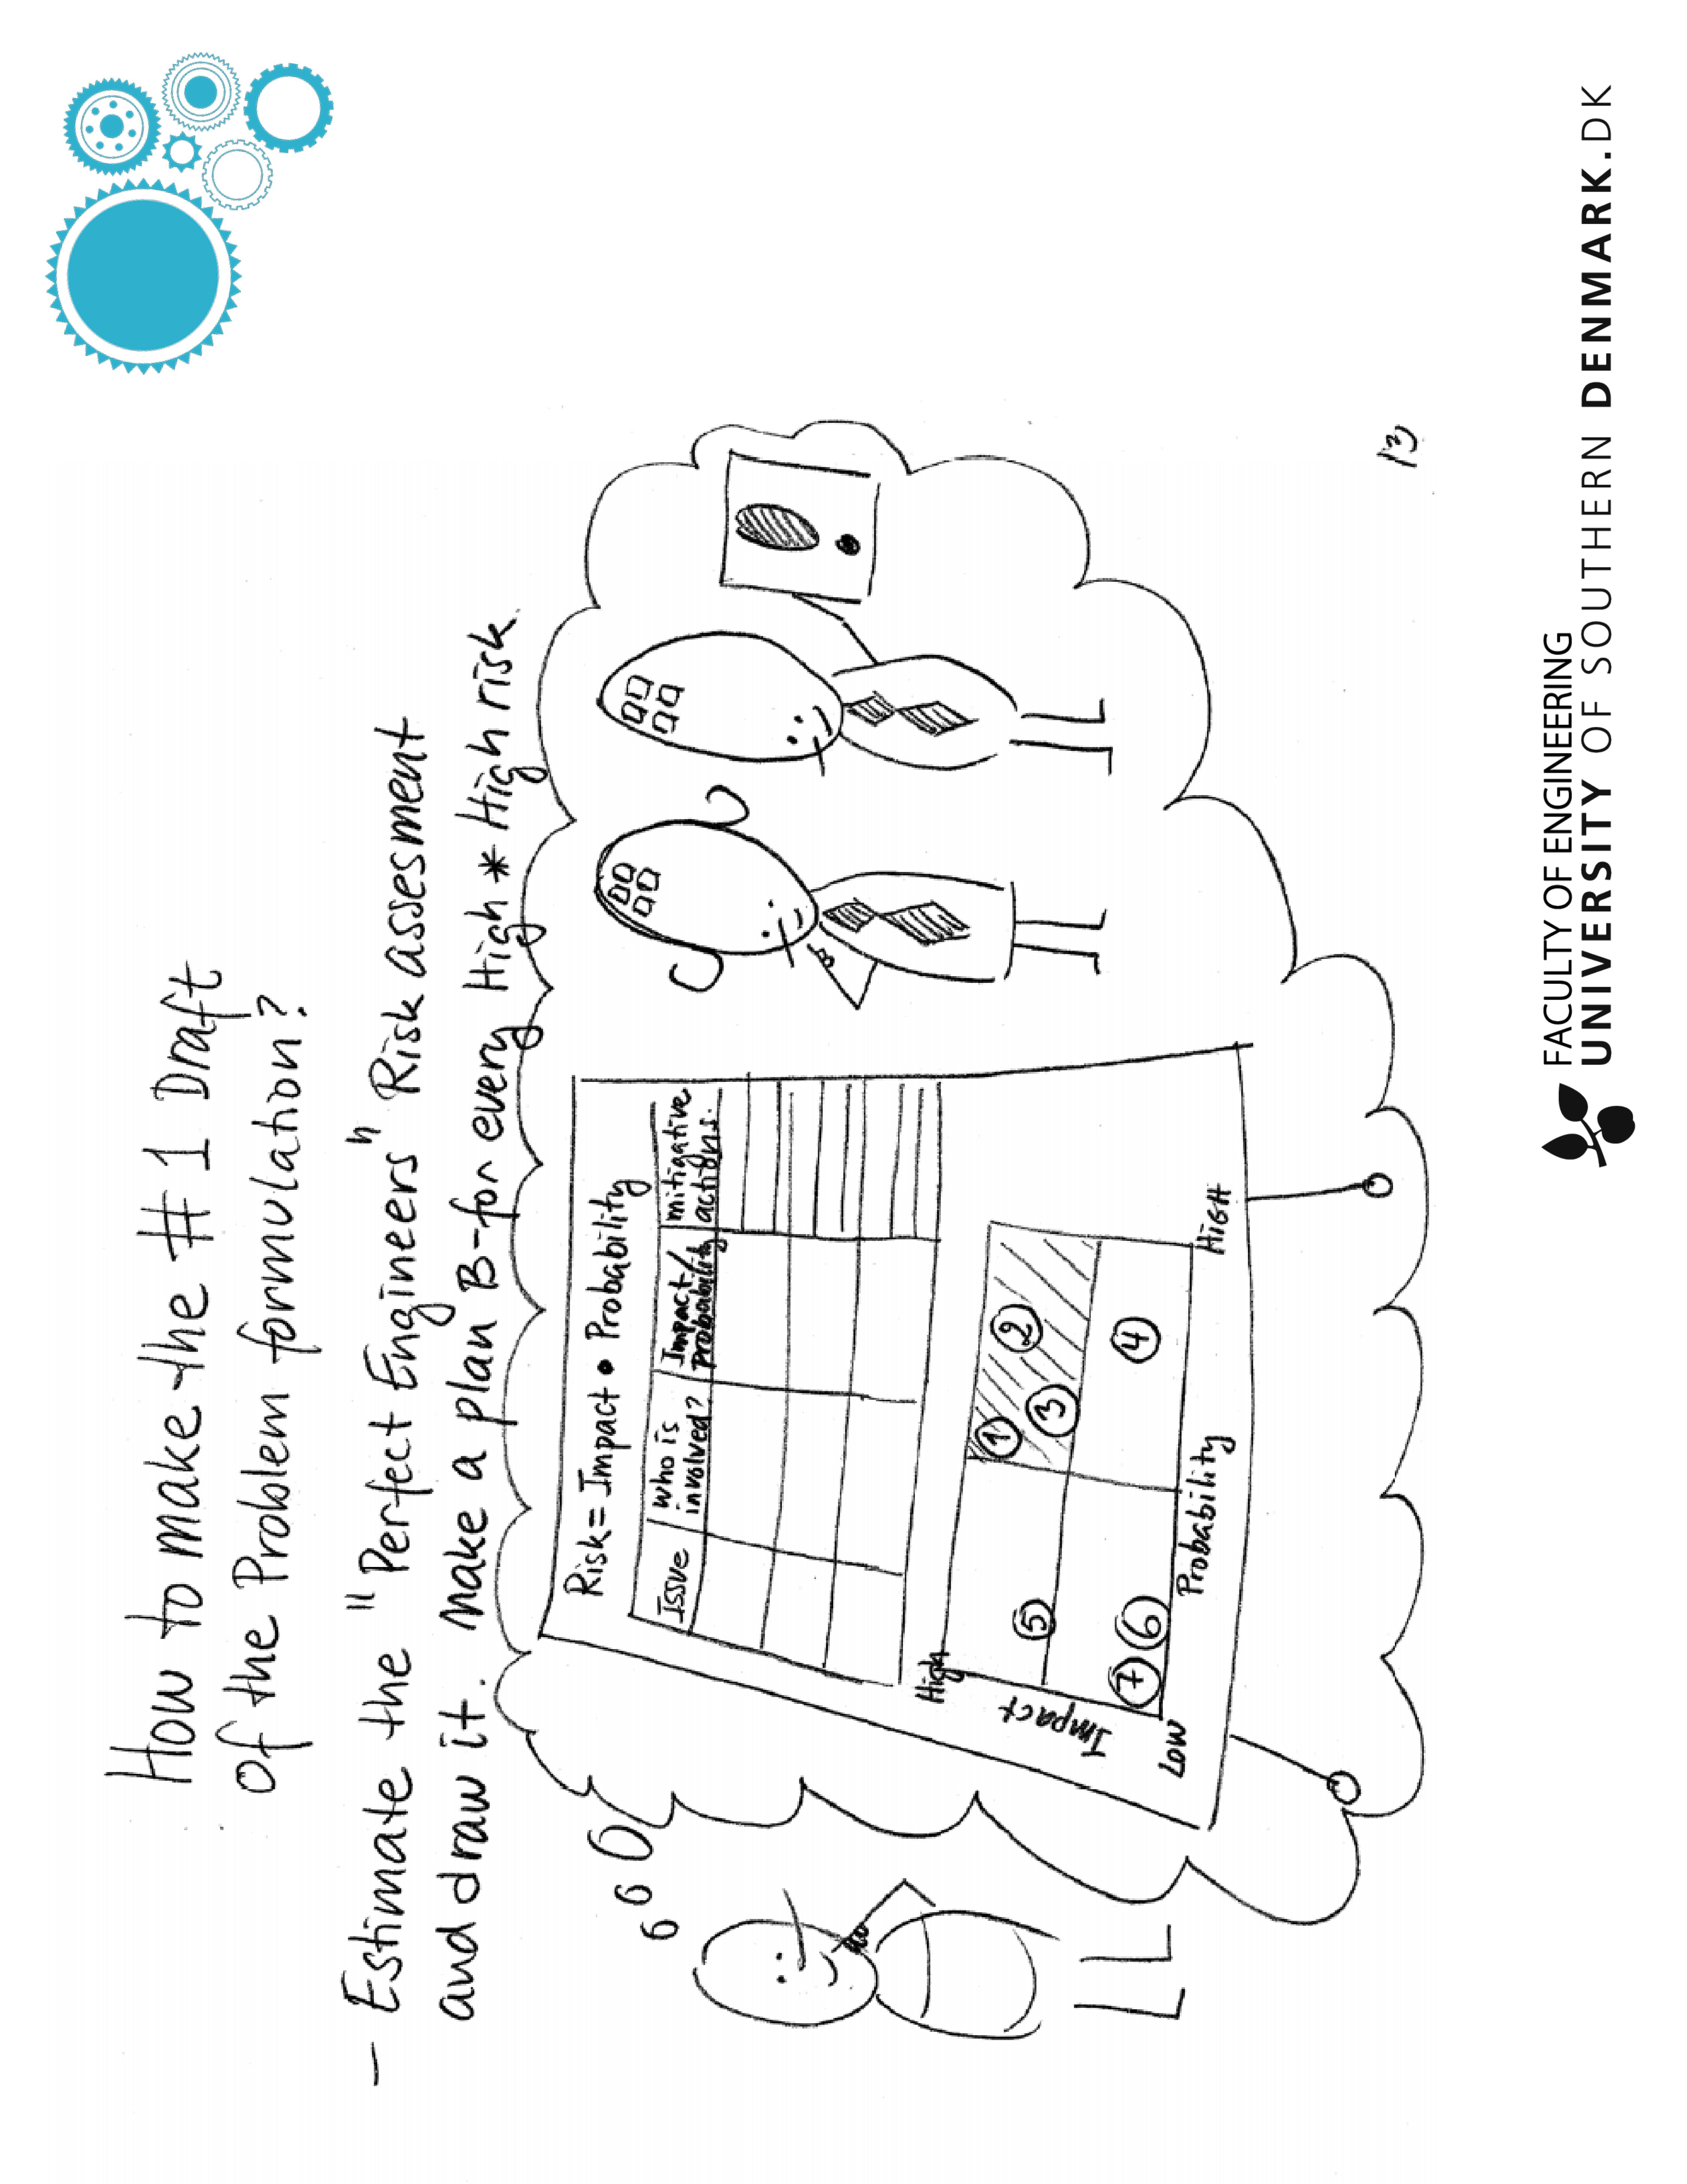 How to make the #1 Draft
of the Problem formulation?
– Estimate the "Perfect Engineers" Risk assessment
and draw it. Make a plan B-for every High * High risk.
Risk = Impact • Probability
Issue
Who is
involved?
Impact/
Probability
mitigative
actions.
High
Impact
Low
Probability
HIGH
1
2
3
4
5
6
7
13
FACULTY OF ENGINEERING
UNIVERSITY OF SOUTHERN DENMARK.DK